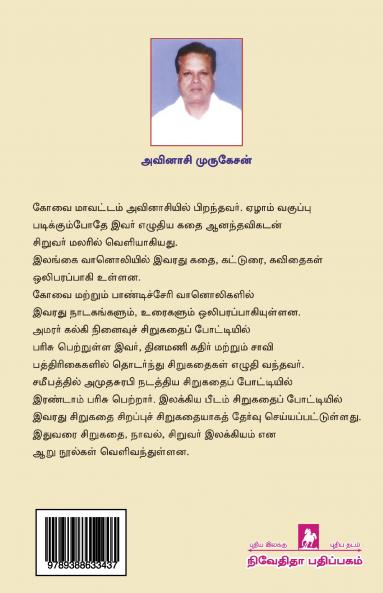 அவினாசி முருகேசன்
கோவை மாவட்டம் அவினாசியில் பிறந்தவர். ஏழாம் வகுப்பு
படிக்கும்போதே இவர் எழுதிய கதை ஆனந்தவிகடன்
சிறுவர் மலரில் வெளியாகியது.
இலங்கை வானொலியில் இவரது கதை, கட்டுரை, கவிதைகள்
ஒலிபரப்பாகி உள்ளன.
கோவை மற்றும் பாண்டிச்சேரி வானொலிகளில்
இவரது நாடகங்களும், உரைகளும் ஒலிபரப்பாகியுள்ளன.
அமரர் கல்கி நினைவுச் சிறுகதைப் போட்டியில்
பரிசு பெற்றுள்ள இவர், தினமணி கதிர் மற்றும் சாவி
பத்திரிகைகளில் தொடர்ந்து சிறுகதைகள் எழுதி வந்தவர்.
சமீபத்தில் அமுதசுரபி நடத்திய சிறுகதைப் போட்டியில்
இரண்டாம் பரிசு பெற்றார். இலக்கிய பீடம் சிறுகதைப் போட்டியில்
இவரது சிறுகதை சிறப்புச் சிறுகதையாகத் தேர்வு செய்யப்பட்டுள்ளது.
இதுவரை சிறுகதை, நாவல், சிறுவர் இலக்கியம் என
ஆறு நூல்கள் வெளிவந்துள்ளன.
9789388633437
புதிய இலக்கு புதிய தடம்
நிவேதிதா பதிப்பகம்